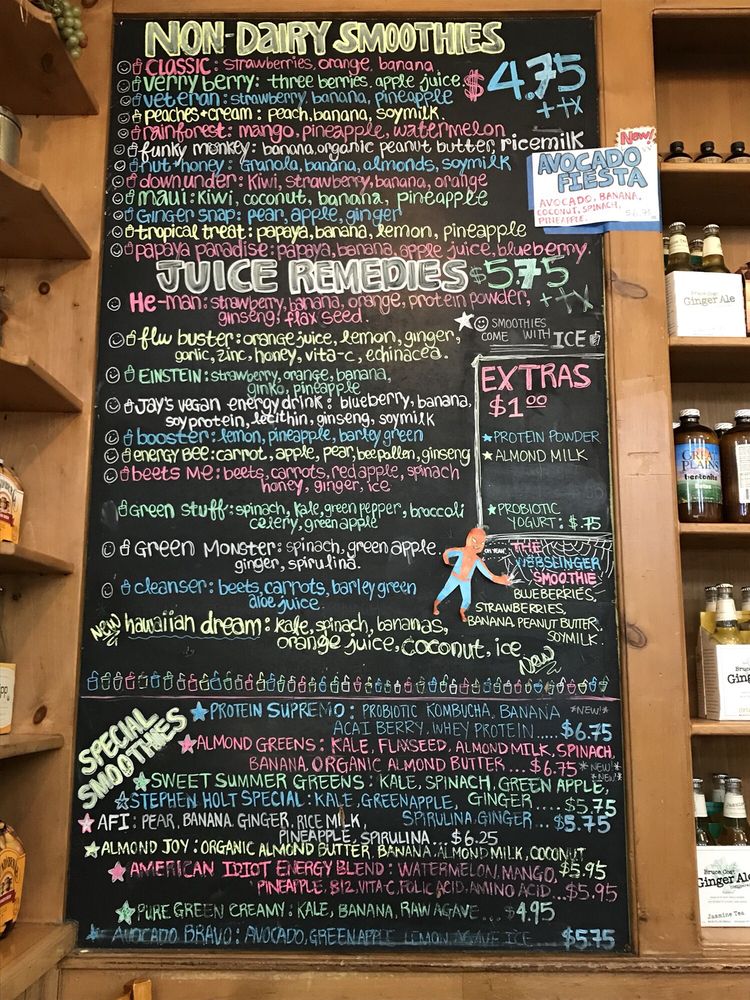 NON-DAIRY SMOOTHIES
CLASSIC: strawberries, orange, banana
verry berry: three berries, apple juice
$4.75
++TX
veteran: strawberry, banana, pineapple
peaches+cream: peach, banana, soymilk.
rainforest: mango, pineapple, watermelon
funky monkey: banana, organic peanut butter, ricemilk
nut+honey: Granola, banana, almonds, soymilk
downunder: Kiwi, strawberry, banana, orange
maui: Kiwi, coconut, banana, pineapple
Ginger snap: pear, apple, ginger
tropical treat: papaya, banana, lemon, pineapple
papaya paradise: papaya, banana, apple juice, blueberry.
New!
AVOCADO
FIESTA
AVOCADO, BANANA,
COCONUT, SPINACH,
PINEAPPLE.
JUICE REMEDIES $5.75
++TX
He-man: strawberry, banana, orange, protein powder,
ginseng, flax seed.
SMOOTHIES
COME WITH ICE
flu buster: orange juice, lemon, ginger,
garlic, zinc, honey, vita-c, echinacea.
EINSTEIN: strawberry, orange, banana,
ginko, pineapple
Jay's vegan energy drink: blueberry, banana,
soy protein, lecithin, ginseng, soymilk
booster: lemon, pineapple, barley green
energy Bee: carrot, apple, pear, bee pollen, ginseng
beets me: beets, carrots, red apple, spinach
honey, ginger, ice
Green stuff: spinach, kale, green pepper, broccoli
celery, green apple
Green Monster: spinach, green apple.
ginger, spirulina.
cleanser: beets, carrots, barley green
aloe juice.
New
hawaiian dream: kale, spinach, bananas,
orange juice, coconut, ice
New
EXTRAS
$1.00
PROTEIN POWDER
ALMOND MILK
PROBIOTIC
YOGURT: $.75
OH YEAH
THE
WEBSLINGER
SMOOTHIE
BLUEBERRIES,
STRAWBERRIES,
BANANA, PEANUT BUTTER,
SOYMILK.
SPECIAL
SMOOTHIES
PROTEIN SUPREMO: PROBIOTIC KOMBUCHA, BANANA *NEW!*
ACAI BERRY, WHEY PROTEIN..... $6.75
ALMOND GREENS: KALE, FLAXSEED, ALMOND MILK, SPINACH,
BANANA, ORGANIC ALMOND BUTTER... $6.75 *NEW!*
*NEW!*
SWEET SUMMER GREENS: KALE, SPINACH, GREEN APPLE,
GINGER.... $5.75
STEPHEN HOLT SPECIAL: KALE, GREEN APPLE,
SPIRULINA, GINGER... $5.75
AFI: PEAR, BANANA, GINGER, RICE MILK,
PINEAPPLE, SPIRULINA... $6.25
ALMOND JOY: ORGANIC ALMOND BUTTER, BANANA, ALMOND MILK, COCONUT
$5.95
AMERICAN IDIOT ENERGY BLEND: WATERMELON, MANGO,
PINEAPPLE, B12, VITA-C, FOLIC ACID, AMINO ACID... $5.95
PURE GREEN CREAMY: KALE, BANANA, RAW AGAVE... $4.95
AVOCADO BRAVO: AVOCADO, GREEN APPLE LEMON AGAVE ICE $5.75
Ginger Ale
GREAT
PLAINS
bentonite
Bruce Cost
Ging
Bruce Cost
Ginger Ale
Jasmine Tea